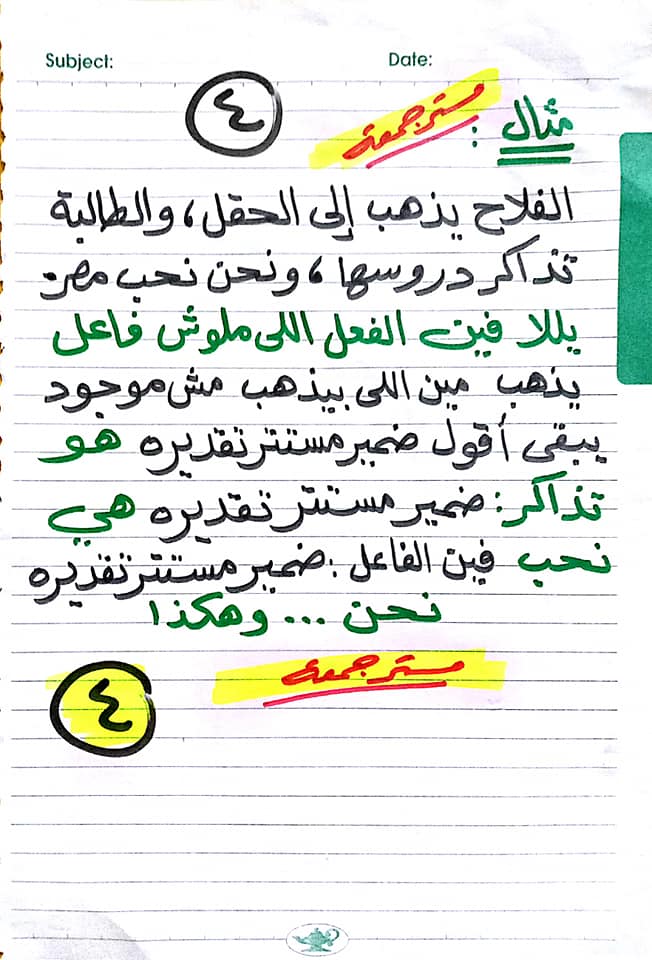 Subject: Date:
٤
مستر جمعة
مثال :
الفلاح يذهب إلى الحقل، والطالبة
تذاكر دروسها، ونحن نحب مصر
يللا فين الفعل اللى ملوش فاعل
يذهب مين اللى بيذهب مش موجود
يبقى أقول ضمير مستتر تقديره هو
تذاكر: ضمير مستتر تقديره هي
نحب فين الفاعل : ضمير مستتر تقديره
نحن ... وهكذا
مستر جمعة
٤